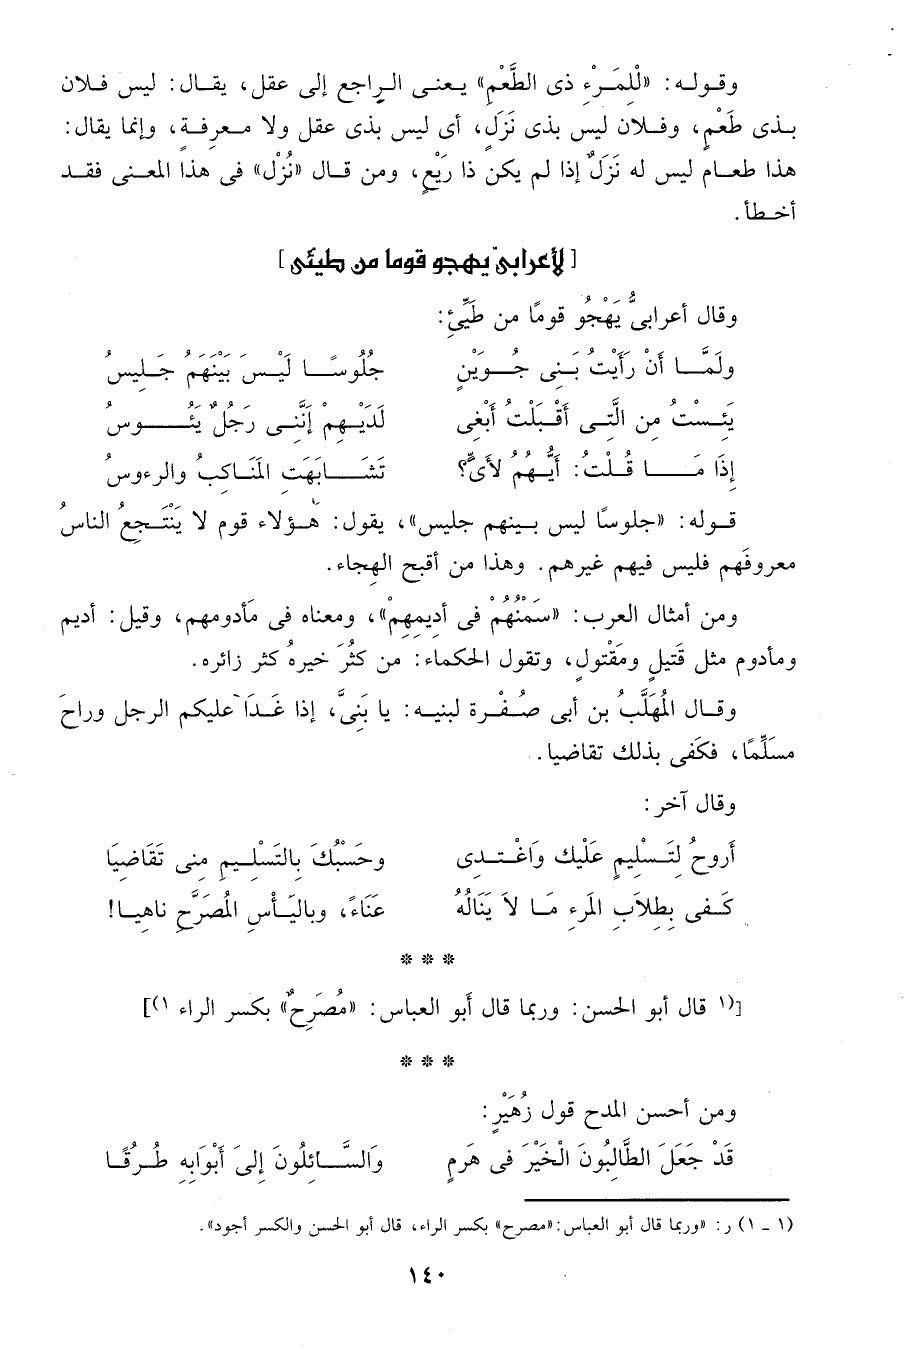 وقوله: «لْلِمَرْءِ ذى الطَّعْمِ» يعنى الراجع إلى عقل، يقال: ليس فلان
بذى طَعْمٍ، وفلان ليس بذى نَزَلٍ، أى ليس بذى عقل ولا معرفة، وإنما يقال:
هذا طعام ليس له نَزَلٌ إذا لم يكن ذا رَيْعٍ، ومن قال «نُزْل» فى هذا المعنى فقد
أخطأ.
[لأعرابىّ يهجو قوما من طيئ]
وقال أعرابىٌّ يَهْجُو قومًا من طَيِّئٍ:
ولَمَّا أنْ رَأَيْتُ بَنى جُوَيْنٍ جُلُوسًا لَيْسَ بَيْنَهُمُ جَلِيسُ
يَئِسْتُ مِن الَّتِى أَقْبَلْتُ أَبْغِى لَدَيْهِمْ إنَّنِى رَجُلٌ يَئُوسُ
إذَا مَا قُلْتُ: أيُّهُمُ لأىٍّ؟ تَشَابَهَتِ المَنَاكِبُ والرءوسُ
قوله: «جلوسًا ليس بينهم جليس»، يقول: هؤلاء قوم لا يَنْتَجِعُ الناسُ
معروفَهم فليس فيهم غيرهم. وهذا من أقبح الهجاء.
ومن أمثال العرب: «سَمْنُهُمْ فى أديمِهِمْ»، ومعناه فى مَأدومهم، وقيل: أديم
ومأدوم مثل قَتِيلٍ ومَقْتُولٍ، وتقول الحكماء: من كثُرَ خيرهُ كثر زائره.
وقال المُهَلَّبُ بن أبى صُفْرة لبنيه: يا بَنِىَّ، إذا غَدَا عليكم الرجل وراحَ
مسَلِّمًا، فكَفى بذلك تقاضيا.
وقال آخر:
أَروحُ لِتَسْلِيمٍ عَلَيْكَ وَاغْتدِى وحَسْبُكَ بِالتَسْلِيمِ مِنى تَقَاضِيَا
كَفى بِطِلاَبِ المرءِ مَا لاَ يَنَالُهُ عَنَاءً، وبِاليَأْسِ المُصَرَّحِ ناهِيا!
* * *
[(١ قال أبو الحسن: وربما قال أبو العباس: «مُصَرِحٌ» بكسر الراء ١)]
* * *
ومن أحسن المدح قول زُهَيْرٍ:
قَدْ جَعَلَ الطَّالِبُونَ الْخَيْرَ فى هَرِمٍ وَالسَّائِلُونَ إلىَ أَبْوَابِهِ طُرُقًا
(١ ـ ١) ر: «وربما قال أبو العباس: «مصرح» بكسر الراء، قال أبو الحسن والكسر أجود».
١٤٠